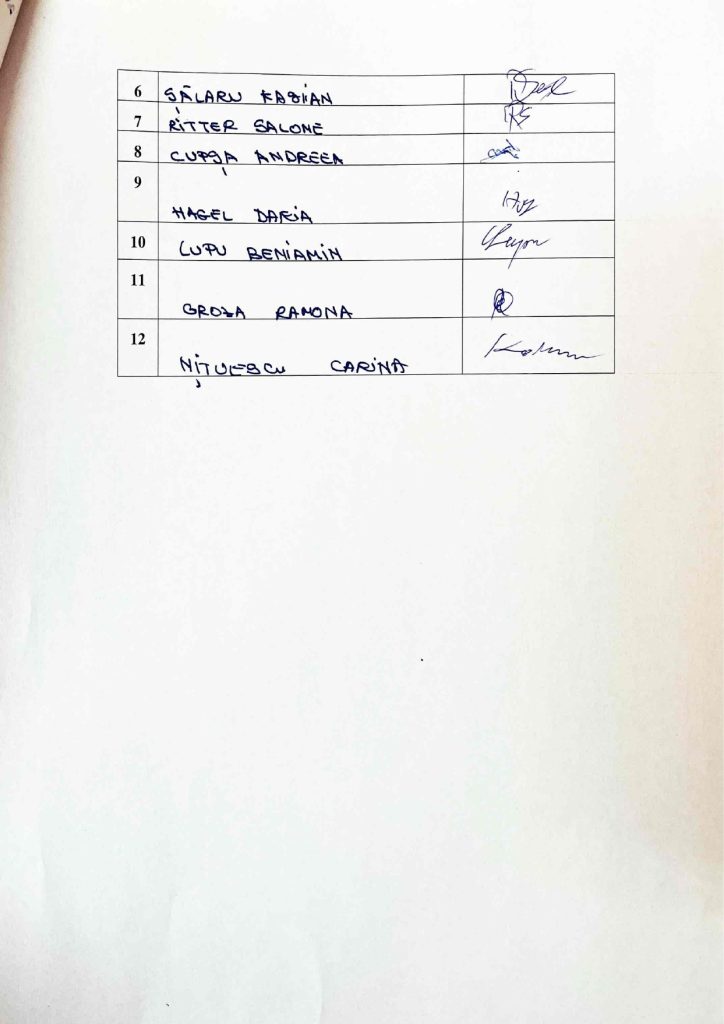 6 SĂLARU FABIAN
7 RITTER SALOME
8 CUPȘA ANDREEA
9
HAGEL DARIA
10 LUPU BENIAMIN
11
GROZA RAMONA
12
NIȚULESCU CARINA